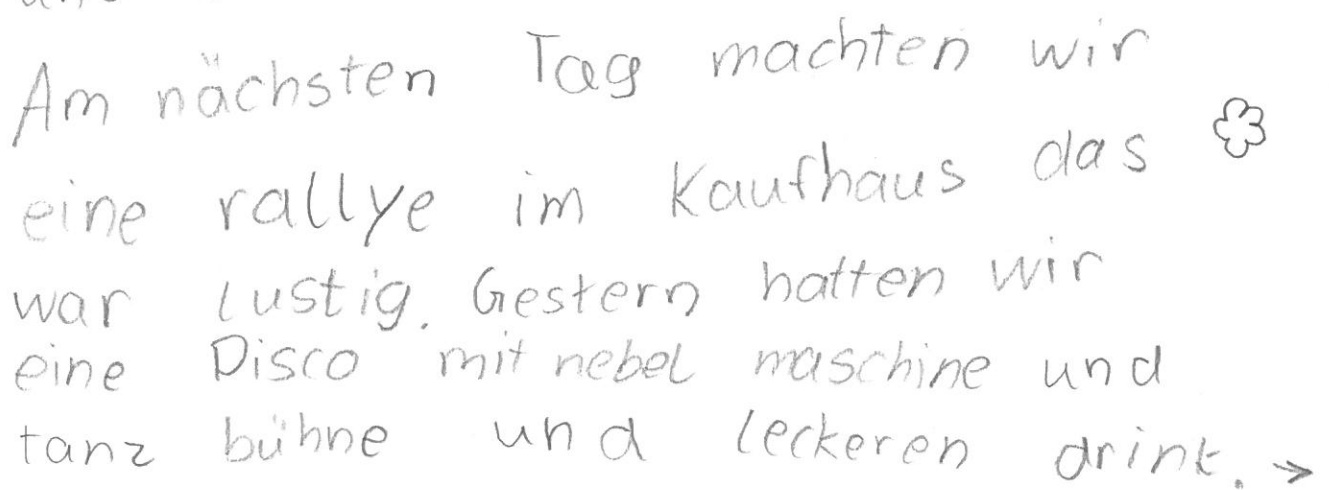 Am nächsten Tag machten wir
eine rallye im Kaufhaus das
war lustig. Gestern hatten wir
eine Disco mit nebel maschine und
tanz bühne und leckeren drink. →